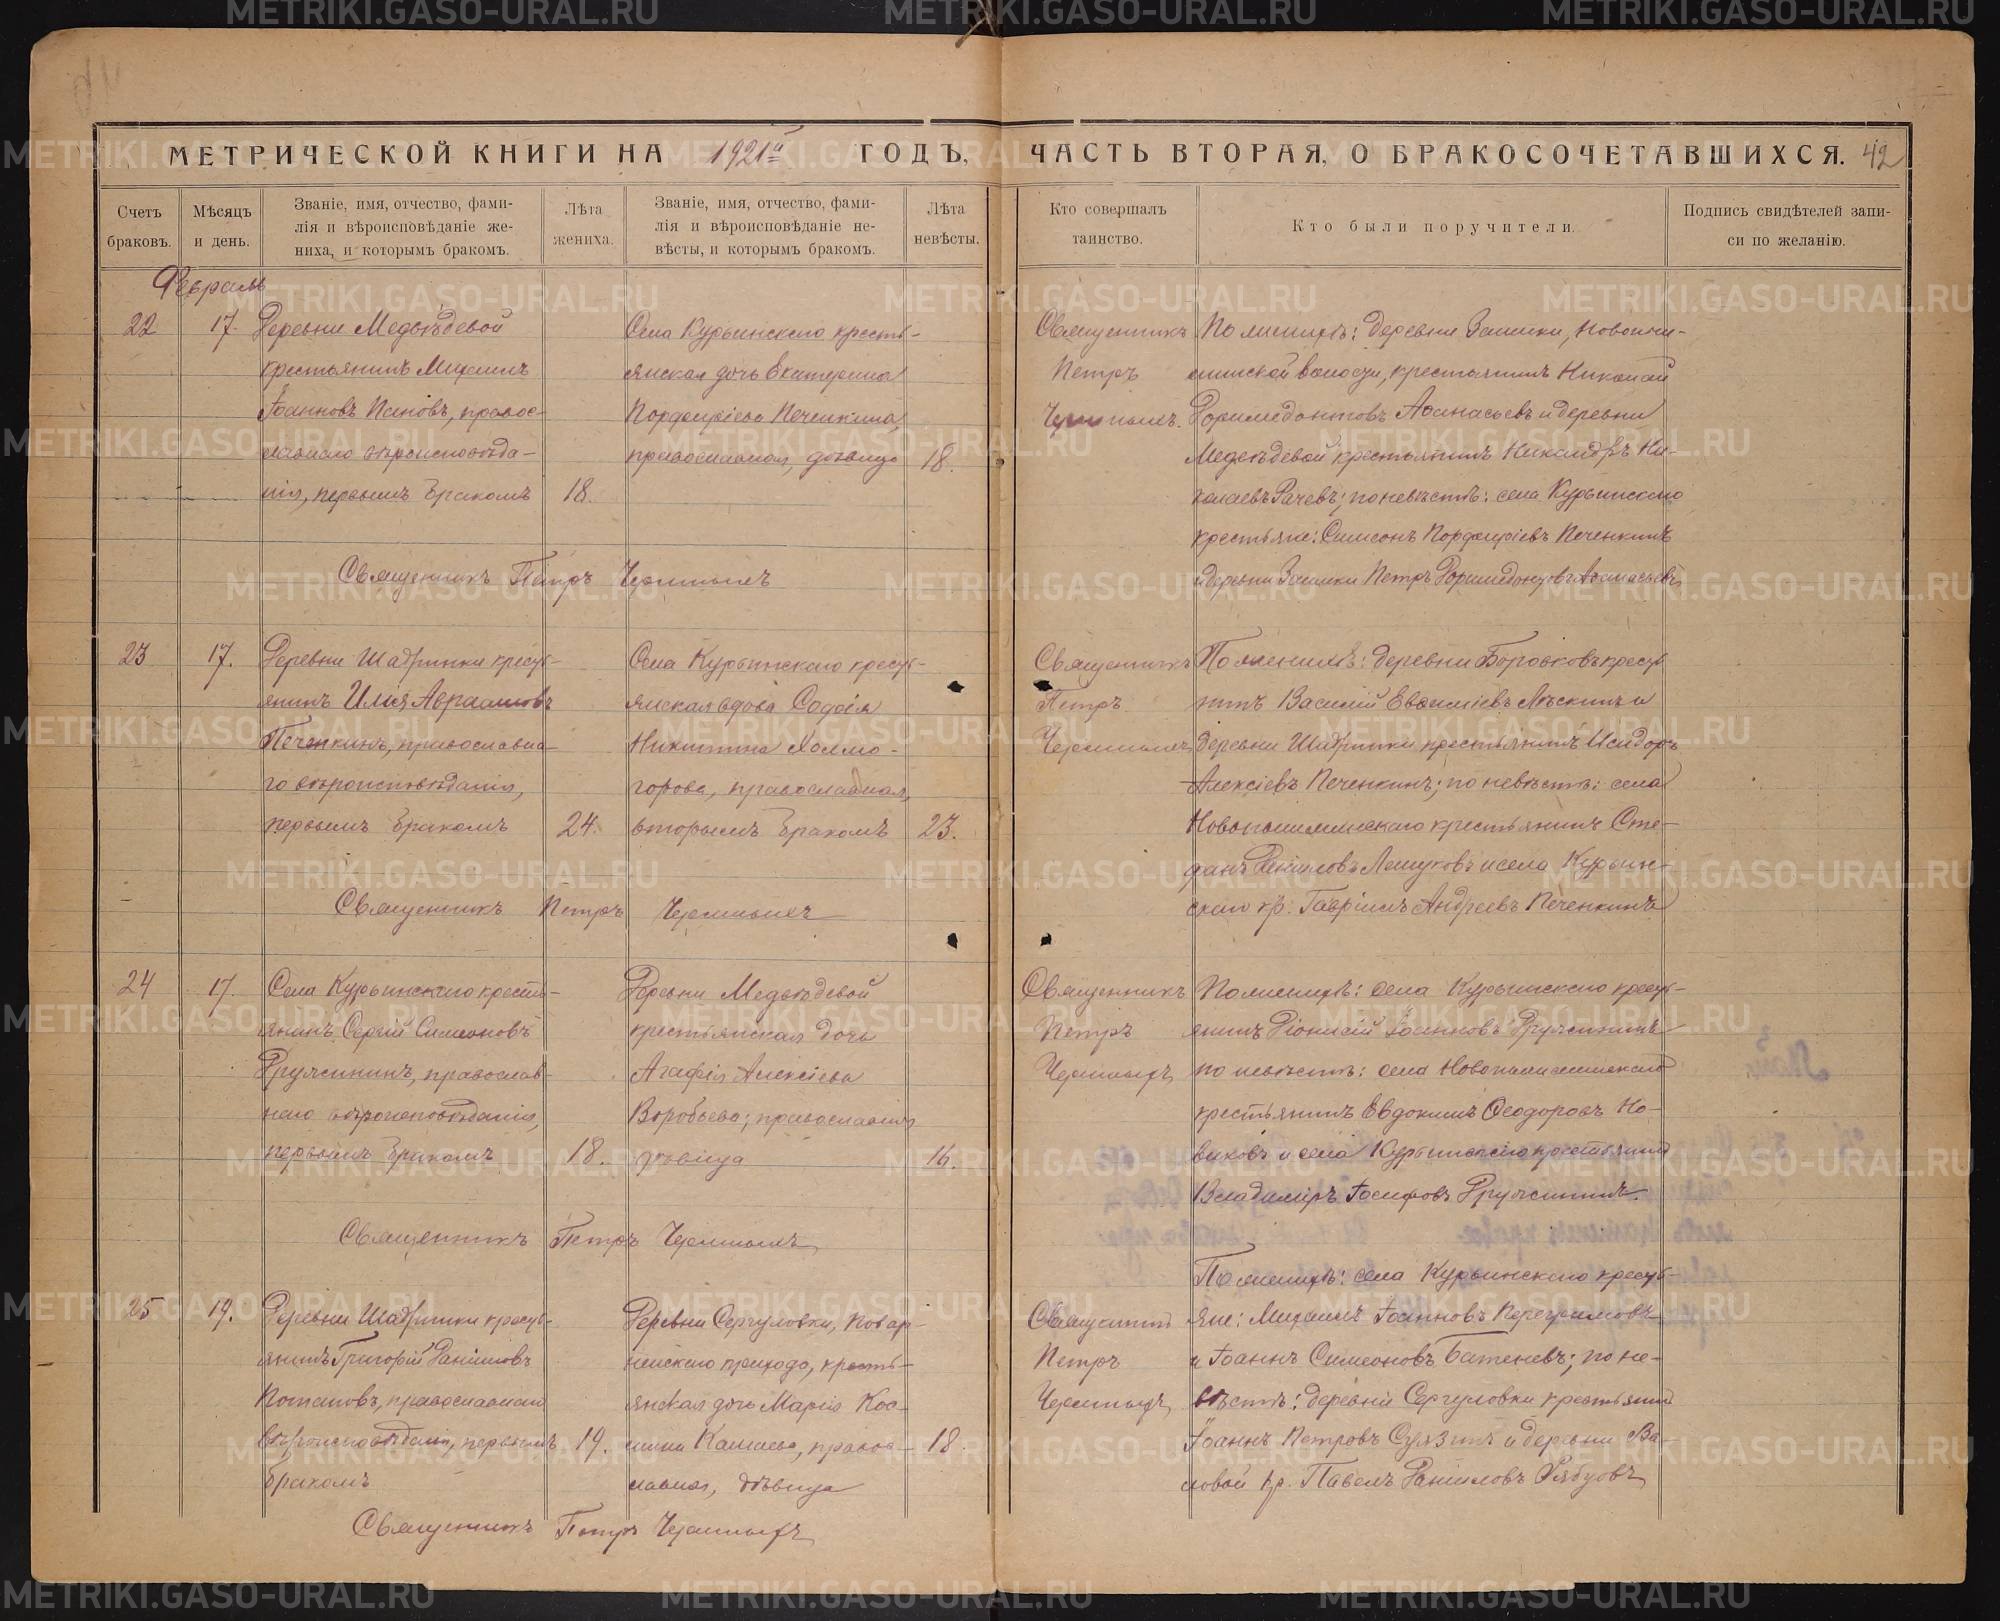 МЕТРИЧЕСКОЙ КНИГИ НА 1921й ГОДЪ, ЧАСТЬ ВТОРАЯ, О БРАКОСОЧЕТАВШИХСЯ. 42
Счетъ браковъ.
Мѣсяцъ и день.
Званіе, имя, отчество, фами-
лія и вѣроисповѣданіе же-
ниха, и которымъ бракомъ.
Лѣта жениха.
Званіе, имя, отчество, фами-
лія и вѣроисповѣданіе не-
вѣсты, и которымъ бракомъ.
Лѣта невѣсты.
Кто совершалъ таинство.
Кто были поручители.
Подпись свидѣтелей запи-
си по желанію.
Февраль
22
17.
Деревни Медвѣдевой
крестьянинъ Михаилъ
Іоанновъ Пановъ, правос-
лавнаго вѣроисповѣда-
нія, первымъ бракомъ
18.
Села Курьинскаго кресть-
янская дочь Екатерина
Порфирieва Печенкина,
православная, дѣвица
18.
Священникъ
Петръ
По женихѣ: деревни Заимки, Новопы-
шминской волости, крестьянинъ Николай
Фармидонтовъ Аѳанасьевъ и деревни
Медвѣдевой крестьянинъ Никандръ Ни-
колаевъ Рачевъ; по невѣстѣ: села Курьинскаго
крестьяне: Симеонъ Порфирieвъ Печенкинъ
и деревни Заимки Петръ Фармидонтовъ Аѳанасьевъ
Священникъ Петръ
23
17.
Деревни Шадринки кресть-
янинъ Илія Авраамовъ
Печенкинъ, православна-
го вѣроисповѣданія,
первымъ бракомъ
24.
Села Курьинскаго кресть-
янская вдова Софія
Никитина Холмо-
горова, православная,
вторымъ бракомъ
23.
Священникъ
Петръ
По женихѣ: деревни Боровковъ кресть
нинъ Василій Евѳиміевъ Лѣскинъ и
деревни Шадринки крестьянинъ Исидоръ
Алексіевъ Печенкинъ; по невѣстѣ: села
Новопышминскаго крестьянинъ Сте-
фанъ Даніиловъ Лешуковъ и села Курьин-
скаго кр. Гавріилъ Андреевъ Печенкинъ
Священникъ Петръ
24
17
Села Курьинскаго кресть-
янинъ Сергій Симеоновъ
Дружининъ, православ-
наго вѣроисповѣданія,
первымъ бракомъ
18.
Деревни Медвѣдевой
крестьянская дочь
Агафія Алексіева
Воробьева; православная
дѣвица
16.
Священникъ
Петръ
По женихѣ: села Курьинскаго кресть-
янинъ Діонисій Іоанновъ Дружининъ
по невѣстѣ: села Новопышминскаго
крестьянинъ Евдокимъ Ѳеодоровъ Но-
виковъ и села Курьинскаго крестьянинъ
Владиміръ Іосифовъ Дружининъ.
Священникъ Петръ
25
19.
Деревни Шадринки кресть-
янинъ Григорій Даніиловъ
Потаповъ, православнаго
вѣроисповѣданія, первымъ
бракомъ
19.
Деревни Сергуловки,
прихода, кресть-
янская дочь Марія Кос-
мина Камаева, правос-
лавная, дѣвица
18.
Священникъ
Петръ
По женихѣ: села Курьинскаго кресть-
яне: Михаилъ Іоанновъ
и Іоаннъ Симеоновъ Батеневъ; по не-
вѣстѣ: деревни Сергуловки крестьянинъ
Іоаннъ Петровъ и деревни
кр. Павелъ Даніиловъ
Священникъ Петръ